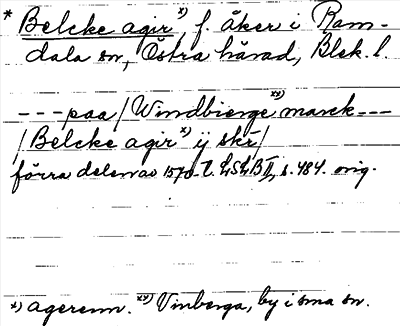 * Belcke agir x), f. åker i Ram-
dala sn, Östra härad, Blek. l.
---paa /Windbierge xx) marck---
/Belcke agir x) ij skr/
förra delen av 1570-t. LSLB II, s. 484. orig.
x) agerenn. xx) Vinberga, by i sma sn.